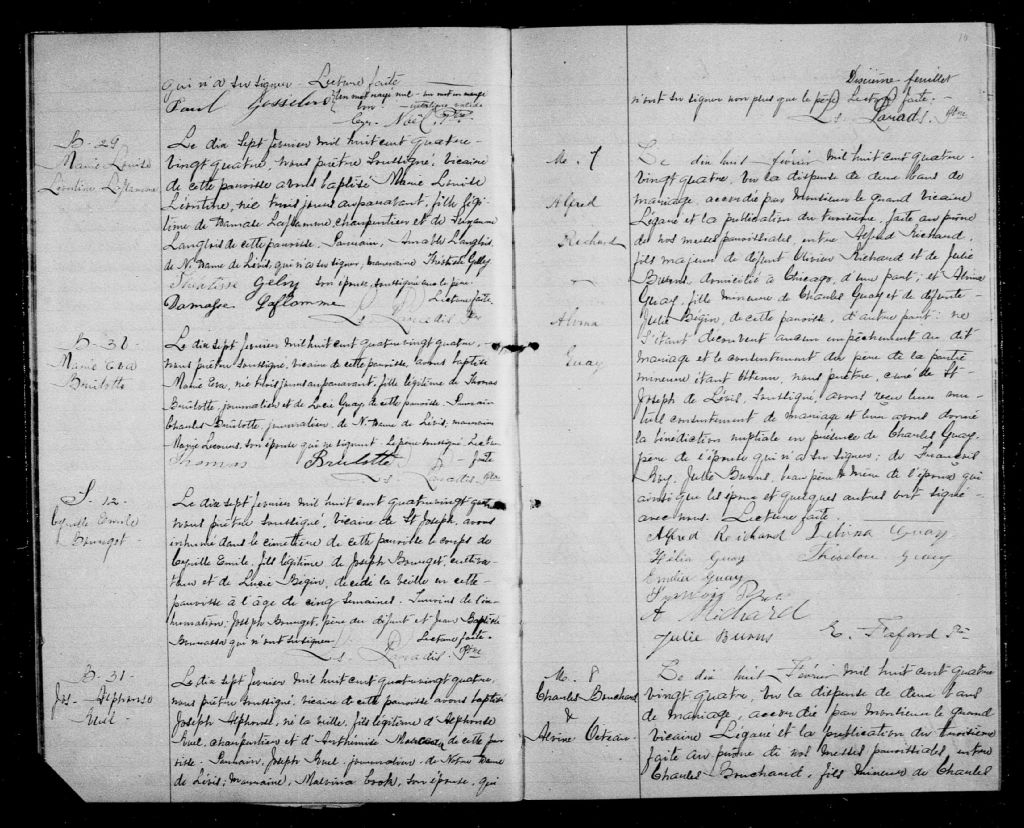 qui n'a su signer. Lecture faite
Paul Gosselin
B. 29
Marie Louise
Léontine Laflamme
Le dix sept février mil huit cent quatre-
vingt quatre, nous prêtre soussigné, vicaire
de cette paroisse avons baptisé Marie Louise
Léontine, née trois jours auparavant, fille légi-
time de Damase Laflamme, charpentier et de
Langlois de cette paroisse. Parrain, Amable Langlois,
de N. Dame de Lévis, qui n'a su signer, marraine
Gelly son épouse, soussignée avec le père.
Damase Laflamme Lecture faite.
Ls. Paradis, Ptre
Marie Eva
Brulotte
Le dix sept février mil huit cent quatre vingt quatre,
nous prêtre soussigné, vicaire de cette paroisse, avons baptisé
Marie Eva, née trois jours auparavant, fille légitime de Thomas
Brulotte, journalier et de Lucie Guay, de cette paroisse. Parrain
Charles Brulotte, journalier, de N. Dame de Lévis, marraine
son épouse qui ne signent. Le père soussigné. Lecture
Thomas Brulotte faite
Ls. Paradis, Ptre
S. 12
Cyrille Emile
Bourget
Le dix sept février mil huit cent quatre vingt quatre
nous prêtre soussigné, vicaire de St Joseph, avons
inhumé dans le cimetière de cette paroisse le corps de
Cyrille Emile, fils légitime de Joseph Bourget, cultiva-
teur et de Lucie Bégin, décédé la veille en cette
paroisse à l'âge de cinq semaines. Témoins de l'in-
humation, Joseph Bourget, père du défunt et Jean Baptiste
Bourassa qui n'ont su signer. Lecture faite.
Ls. Paradis, Ptre
B. 31
Jos. Alphonse
Le dix sept février mil huit cent quatre vingt quatre,
nous prêtre soussigné, vicaire de cette paroisse avons baptisé
Joseph Alphonse, né la veille, fils légitime d'Alphonse
charpentier et d'Arthémise de cette pa-
roisse. Parrain, Joseph journalier de Notre Dame
de Lévis; marraine, Malvina Cook, son épouse, qui
Dixième feuillet
n'ont su signer non plus que le père. Lecture faite.
Ls. Paradis, Ptre
M. 7
Alfred
Richard
Alvina
Guay
Le dix huit février mil huit cent quatre-
vingt quatre, vu la dispense de deux bans de
mariage, accordée par Monsieur le Grand Vicaire
Légaré et la publication du troisième, faite au prône
de nos messes paroissiales, entre Alfred Richard,
fils majeur de défunt Olivier Richard et de Julie
Burns, domicilié à Chicago, d'une part; et Alvina
Guay, fille mineure de Charles Guay et de défunte
Julie Bégin, de cette paroisse, d'autre part: ne
s'étant découvert aucun empêchement au dit
mariage et le consentement du père de la partie
mineure étant obtenu, nous prêtre, curé de St-
Joseph de Lévis, soussigné, avons reçu leur mu-
tuel consentement de mariage et leur avons donné
la bénédiction nuptiale en présence de Charles Guay,
père de l'épouse qui n'a su signer; de François
Roy, Julie Burns, beau père & mère de l'époux qui
ainsi que les époux et quelques autres ont signé
avec nous. Lecture faite.
Alfred Reichard Albina Guay
Guay Guay
Emelia Guay
François Roy
A. Michard
Julie Burns
M. 8
Charles Bouchard
&
Alvine
Le dix huit Février mil huit cent quatre
vingt quatre, vu la dispense de deux bans
de mariage, accordée par Monsieur le Grand
Vicaire Légaré et la publication du troisième
faite au prône de nos messes paroissiales, entre
Charles Bouchard, fils mineur de Charles